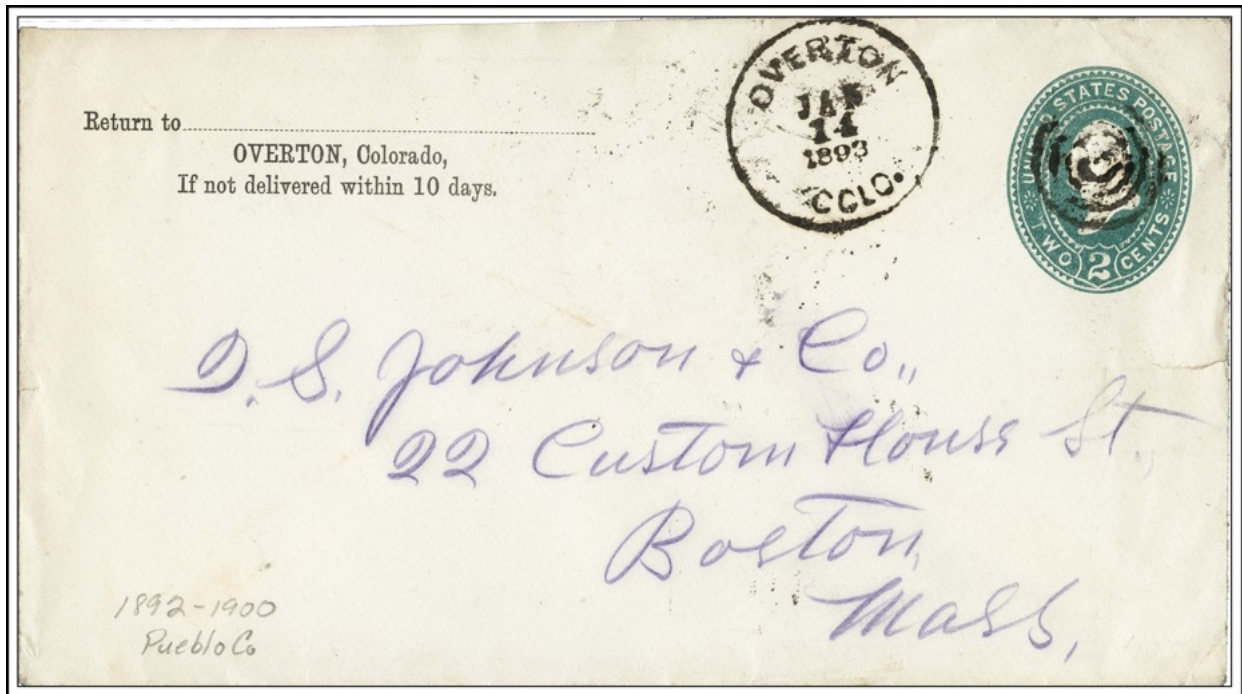 Return to
OVERTON, Colorado,
If not delivered within 10 days.
OVERTON
JAN
14
1893
COLO.
UNITED STATES POSTAGE
TWO 2 CENTS
D. S. Johnson & Co.,
22 Custom House St.,
Boston,
Mass,
1892-1900
Pueblo Co